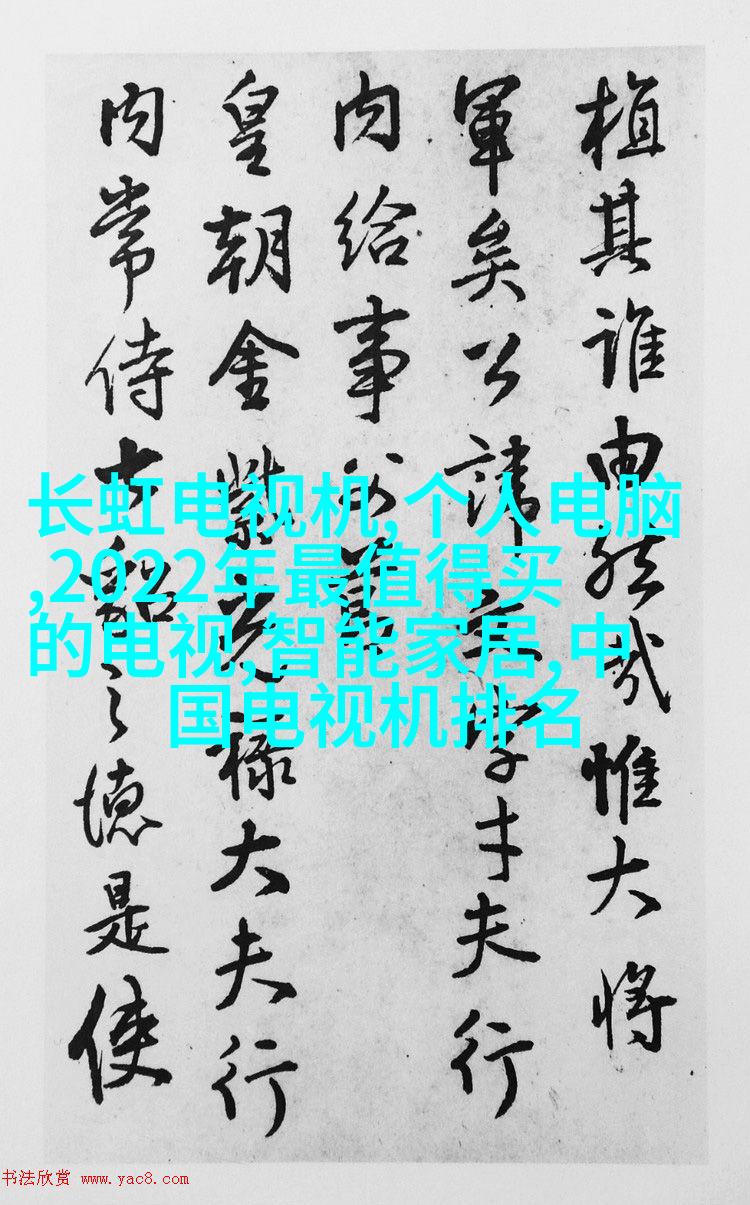 植其誰由然哉惟大將
軍矣公諱文字才夫行
內給事
皇朝金紫光祿大夫行
內常侍七貂之德是使
长虹电视机,个人电脑
,2022年最值得买
的电视,智能家居,中
国电视机排名
书法欣赏 www.yac8.com